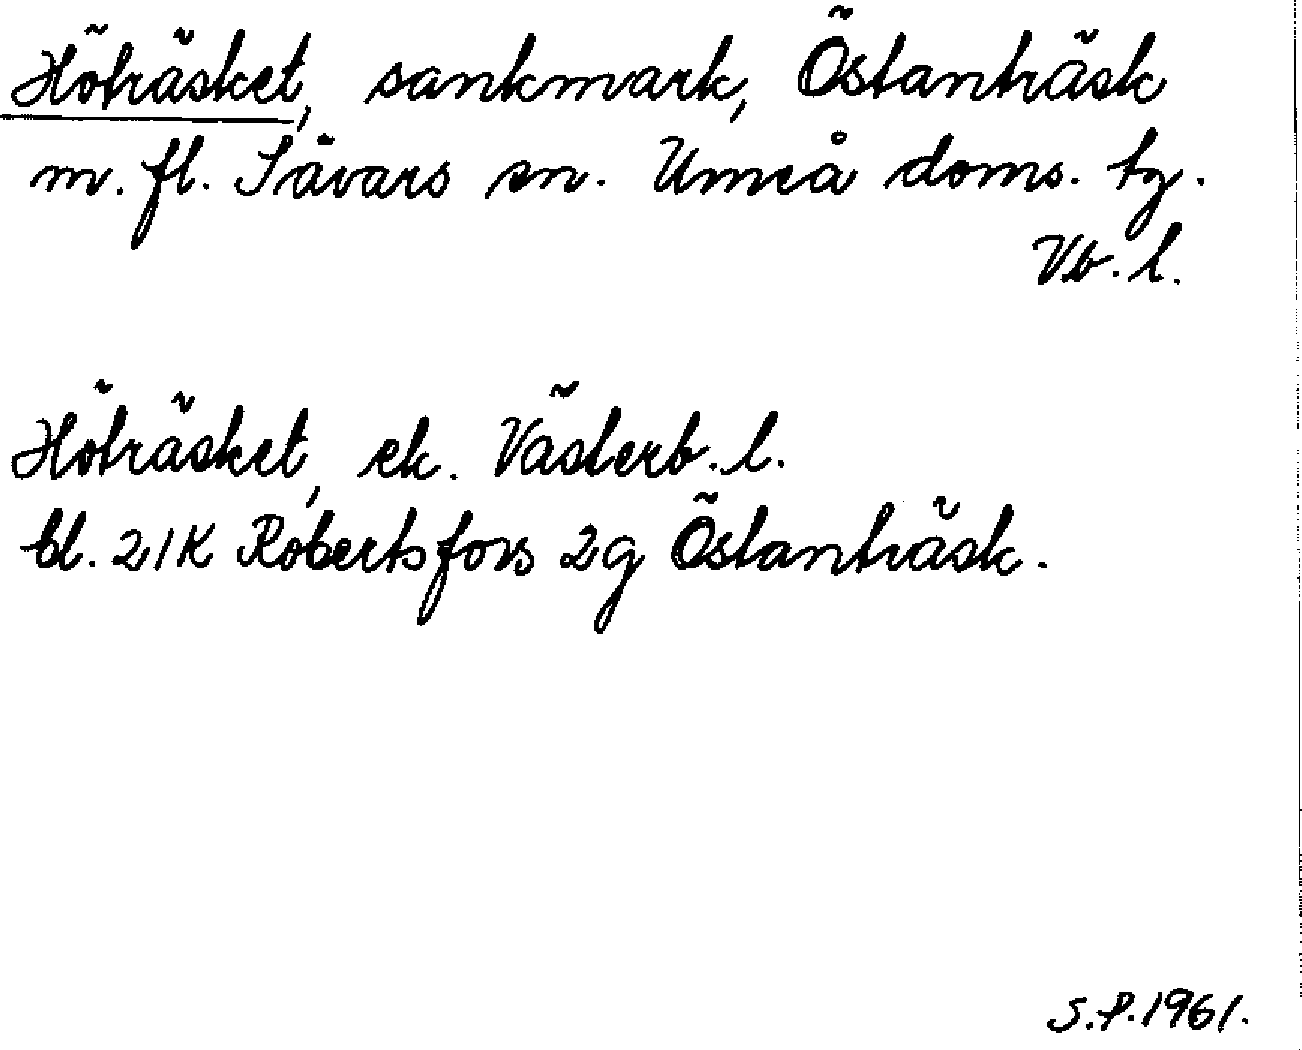 Höträsket, sankmark, Östanträsk
m. fl. Sävars sn. Umeå doms. tg.
Vb. l.
Höträsket, ek. Västerb. l.
bl. 21K Robertsfors 2g Östanträsk.
S.P. 1961.